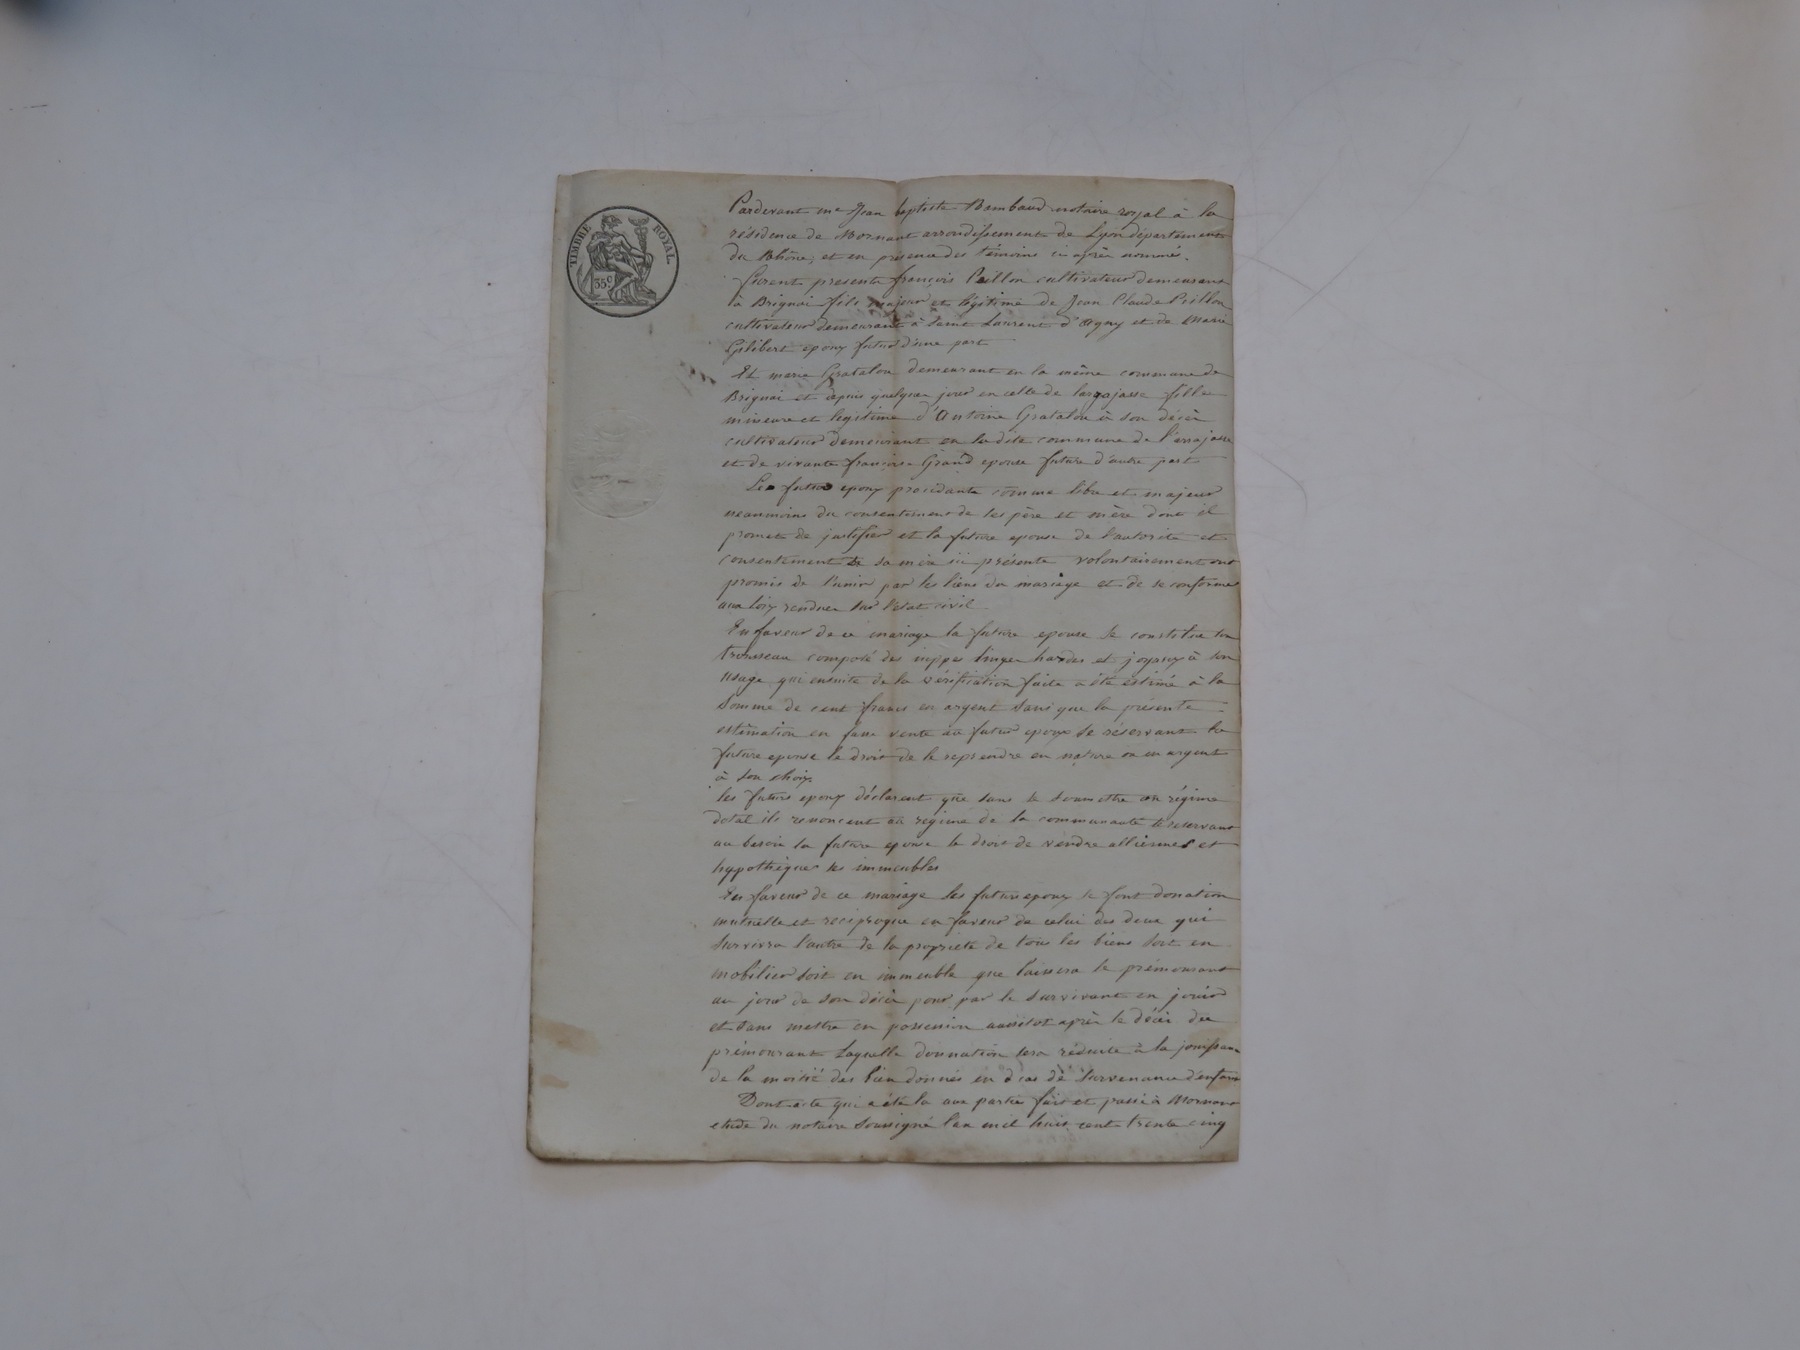 TIMBRE ROYAL.
35 c
Pardevant me Jean baptiste Rambaud notaire royal à la
résidence de Mornant arrondissement de Lyon département
du Rhône, et en présence des témoins ci après nommés.
furent presents françois Peillon cultivateur demeurant
à Brignai fils majeur et légitime de Jean Claude Peillon
cultivateur demeurant à Saint Laurent d'agny et de Marie
Gilibert epoux futur d'une part
Et marie Gratalou demeurant en la même commune de
Brignai et depuis quelques jours en celle de largajasse fille
mineure et legitime d'Antoine Gratalou à son décès
cultivateur demeurant en la dite commune de l'arrajasse
et de vivante françoise Grand epouse future d'autre part
Le futur epoux procédante comme libre et majeur
neanmoins du consentement de ses père et mère dont il
promet de justifier et la future epouse de l'autorité et
consentement de sa mère ici présente volontairement ont
promis de s'unir par les liens du mariage et de se conformer
aux loix rendues sur l'état civil
En faveur de ce mariage la future epouse se constitue son
trousseau composé des nippes linges hardes et joyaux à son
usage qui ensuite de la vérification faite a été estimé à la
somme de cent francs en argent sans que la présente
estimation en fasse vente au futur epoux se réservant la
future epouse le droit de le reprendre en nature ou en argent
à son choix
les futurs epoux déclarent que sans se soumettre au régime
dotal ils renoncent au régime de la communauté se reservant
au besoin la future epouse le droit de vendre alliéner et
hypothéquer ses immeubles
En faveur de ce mariage les futurs epoux se font donation
mutuelle et reciproque en faveur de celui des deux qui
survivra l'autre de la propriété de tous les biens soit en
mobilier soit en immeuble que laissera le prémourant
au jour de son décès pour par le survivant en jouir
et s'ans mettre en possession aussitot après le décès du
prémourant laquelle donnation sera réduite à la jouissance
de la moitié des bien donnés en cas de survenance d'enfans
Dont acte qui a été lu aux partie fait et passé à Mornant
etude du notaire soussigné l'an mil huit cent trente cinq